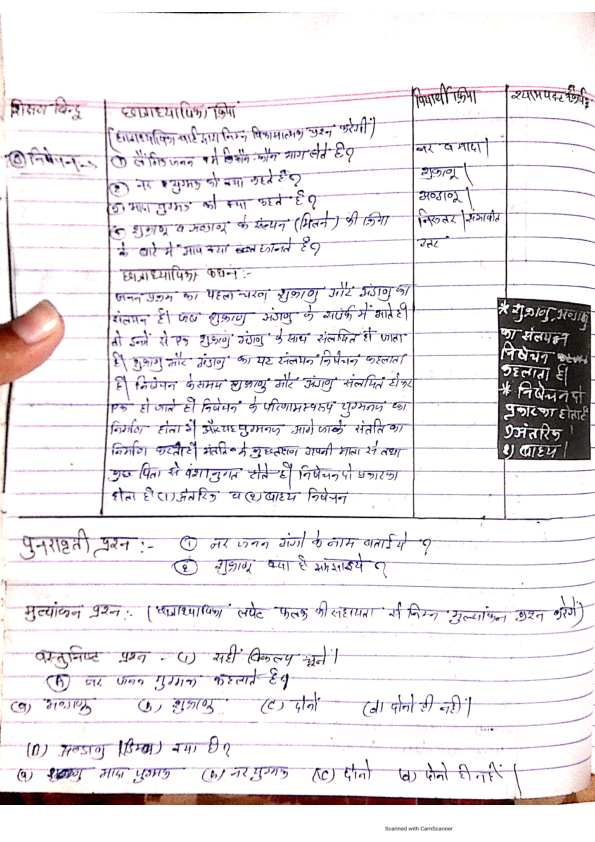 शिक्षण बिन्दु
छात्राध्यापिका क्रिया
विद्यार्थी क्रिया
श्यामपट्ट कार्य
(छात्राध्यापिका चार्ट द्वारा निम्न विकासात्मक प्रश्न करेगी)
निषेचन
① लैंगिक जनन में कौन कौन भाग लेते है?
② नर युग्मक को क्या कहते है?
③ मादा युग्मक को क्या कहते है?
④ शुक्राणु व अण्डाणु के संलयन (मिलने) की क्रिया
के बारे में आप क्या जानते है?
नर व मादा|
शुक्राणु|
अण्डाणु|
निरूत्तर|संभावित
उत्तर
छात्राध्यापिका कथन :-
जनन प्रक्रम का पहला चरण शुक्राणु और अंडाणु का
संलयन है। जब शुक्राणु अंडाणु के सम्पर्क में आते है
तो इनमें से एक शुक्राणु अंडाणु के साथ संलयित हो जाता
है। शुक्राणु और अंडाणु का यह संलयन निषेचन कहलाता
है। निषेचन के समय शुक्राणु और अंडाणु संलयित होकर
एक हो जाते है। निषेचन के परिणामस्वरूप युग्मनज का
निर्माण होता है। और यह युग्मनज आगे जाके संतति का
निर्माण करता है। संतति के कुछ लक्षण अपनी माता से तथा
कुछ पिता से वंशानुगत होते है। निषेचन दो प्रकार का
होता है (1) अंतरिक व (2) बाहय निषेचन
* शुक्राणु, अण्डाणु
का संलयन
निषेचन
कहलाता है।
* निषेचन दो
प्रकार का होता है
1) अंतरिक |
2) बाहय |
पुनरावृती प्रश्न :- ① नर जनन अंगो के नाम बताईये ?
② शुक्राणु क्या है समझाइये ?
मुल्यांकन प्रश्न :- (छात्राध्यापिका लपेट फलक की सहायता से निम्न मुल्यांकन प्रश्न करेगें)
वस्तुनिष्ट प्रश्न - (1) सहीं विकल्प चुने।
नर जनन युग्मक कहलाते है?
(a) अण्डाणु (b) शुक्राणु (c) दोनों (d) दोनो ही नहीं|
अण्डाणु (डिम्ब) क्या है?
(a) मादा युग्मक (b) नर युग्मक (c) दोनो (d) दोनो ही नहीं |
Scanned with CamScanner